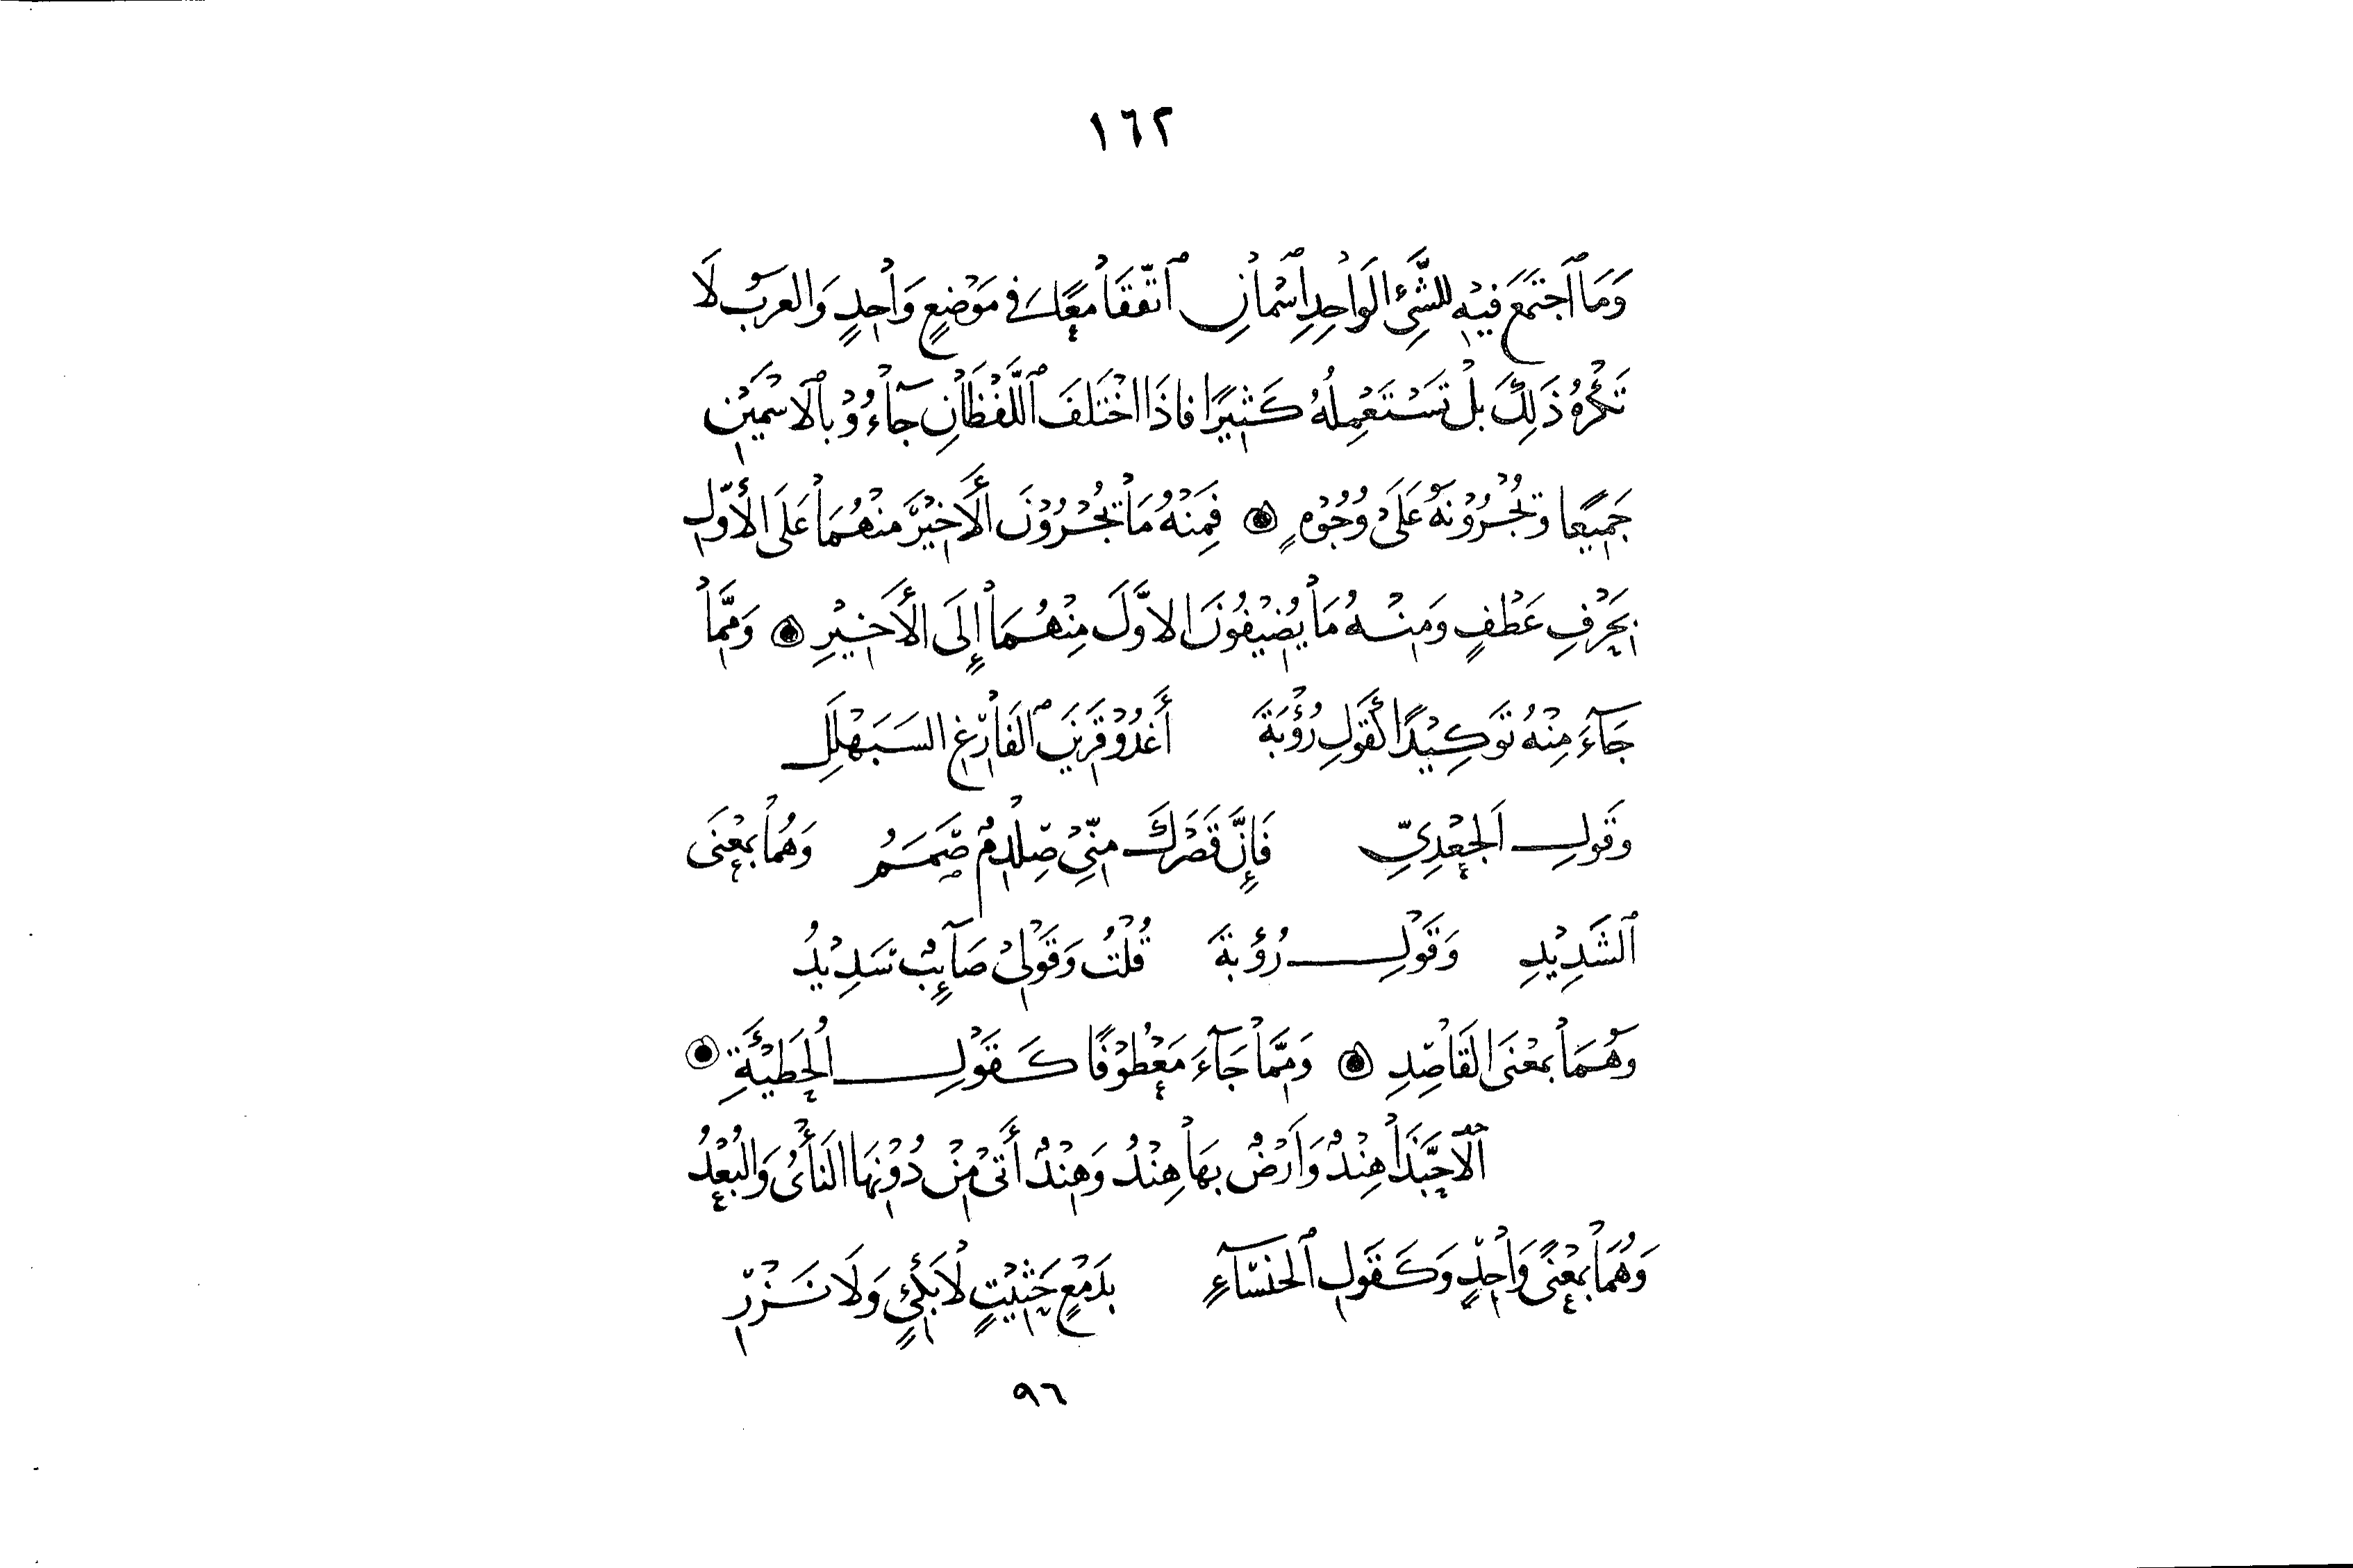 ١٦٢
وَمَا ٱجْتَمَعَ فِيْهِ لِلشَّىْءِ الوَاحِدِ ٱسْمَانِ ٱتَّفَقَا مَعًا فِى مَوْضِعٍ وَاحِدٍ وَالعَرَبُ لَا
تَكْرَهُ ذَلِكَ بَلْ تَسْتَعْمِلُهُ كَثِيْرًا فاذَا اخْتَلَفَ ٱللَّفْظَانِ جَآءُوْ بِٱلاسْمَيْنِ
جَمِيْعًا وتُجْرُوْنَهُ عَلَى وُجُوْهٍ ۞ فَمِنْهُ مَا تُجْرُوْنَ الأَخِيْرَ مِنْهُمَا عَلَى الأَوَّلِ
بِحَرْفِ عَطْفٍ وَمِنْهُ مَا يُضِيْفُوْنَ الاوَّلَ مِنْهُمَا إِلَى الأَخِيْرِ ۞ وَمِمَّا
جَآءَ مِنْهُ تَوكِيْدًا كَقَوْلِ رُؤْبَةَ أَغْدُوْ قَرِيْنَ ٱلفَارِغِ السَبَهْلَلِ
وَقَولِ الجَعْدِىِّ فَإِنَّ قَصْرَكَ مِنِّىْ صِلْدِمٌ صَمَمُ وَهُمَا بِمَعْنَى
ٱلشَدِيْدِ وَقَوْلِ رُؤْبَةَ قُلْتُ وَقَوْلِىْ صَآئِبٌ سَدِيْدُ
وَهُمَا بِمَعْنَى القَاصِدِ ۞ وَمِمَّا جَآءَ مَعْطُوْفًا كَقَوْلِ الحُطَيْئَةِ ۞
ٱلَا حَبَّذَا هِنْدٌ وَاَرْضٌ بِهَا هِنْدُ وَهِنْدٌ أَتَىْ مِنْ دُوْنِهَا النَأْىُ وَالبُعْدُ
وَهُمَا بِمَعْنًى وَاحِدٍ وَكَقَوْلِ ٱلخَنْسَآءِ بِدَمْعٍ حَثِيْثٍ لَا بَكْىٍٔ وَلَا نَزْرِ
٩٦